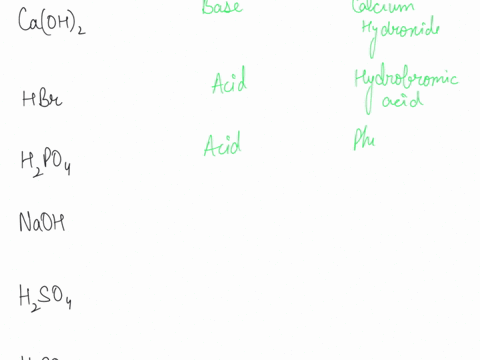 Ca(OH)₂ Base Calcium
Hydroxide
HBr Acid Hydrobromic
acid
H₂PO₄ Acid Ph
NaOH
H₂SO₄